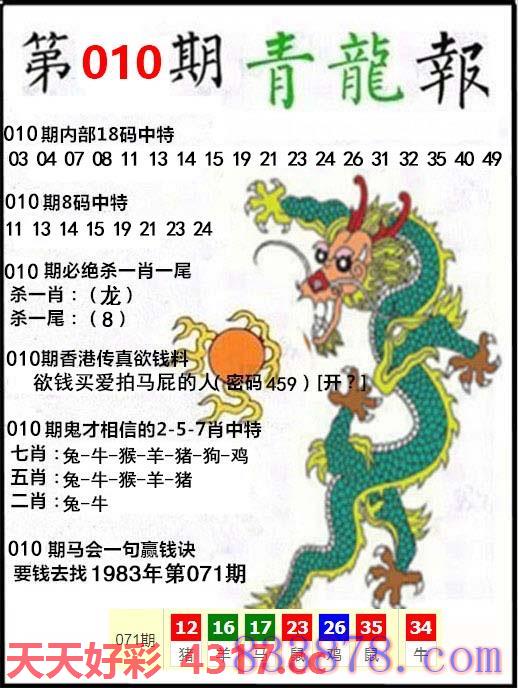 第010期青龍報
010期内部18码中特
03 04 07 08 11 13 14 15 19 21 23 24 26 31 32 35 40 49
010期8码中特
11 13 14 15 19 21 23 24
010期必绝杀一肖一尾
杀一肖：(龙)
杀一尾：(8)
010期香港传真欲钱料
欲钱买爱拍马屁的人(密码459)[开?]
010期鬼才相信的2-5-7肖中特
七肖：兔-牛-猴-羊-猪-狗-鸡
五肖：兔-牛-猴-羊-猪
二肖：兔-牛
010期马会一句赢钱诀
要钱去找1983年第071期
071期 12 16 17 23 26 35 34
猪 羊 马 鼠 鸡 鼠 牛
天天好彩 4317.cc